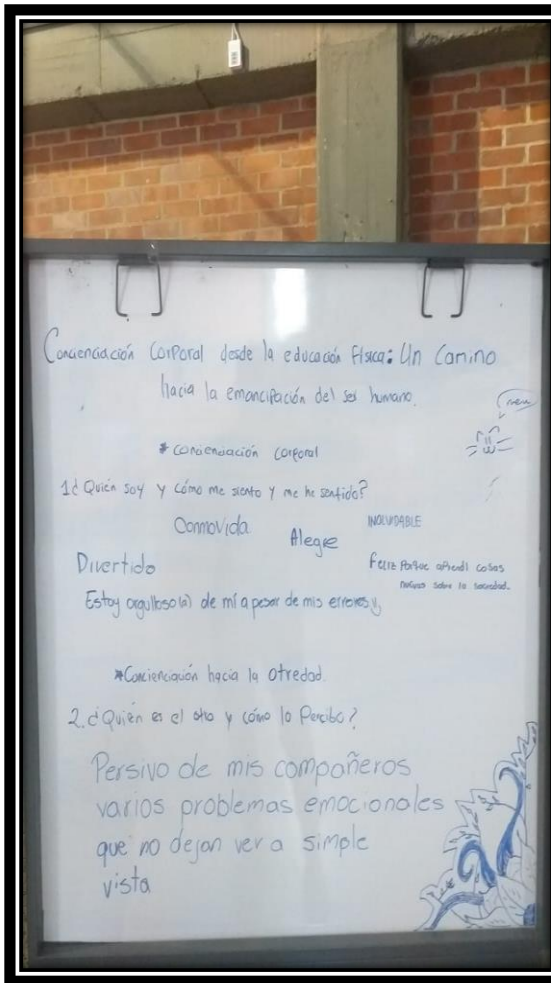 Concienciación Corporal desde la educación física: Un Camino
hacia la emancipación del ser humano.
* concienciación corporal
1 ¿Quién soy y cómo me siento y me he sentido?
Conmovida
Alegre
INOLVIDABLE
Divertido
Feliz Porque aprendí cosas
nuevas sobre la sociedad.
Estoy orgulloso(a) de mí a pesar de mis errores
*Concienciación hacia la Otredad.
2. ¿Quién es el otro y cómo lo Percibo?
Persivo de mis compañeros
varios problemas emocionales
que no dejan ver a simple
vista